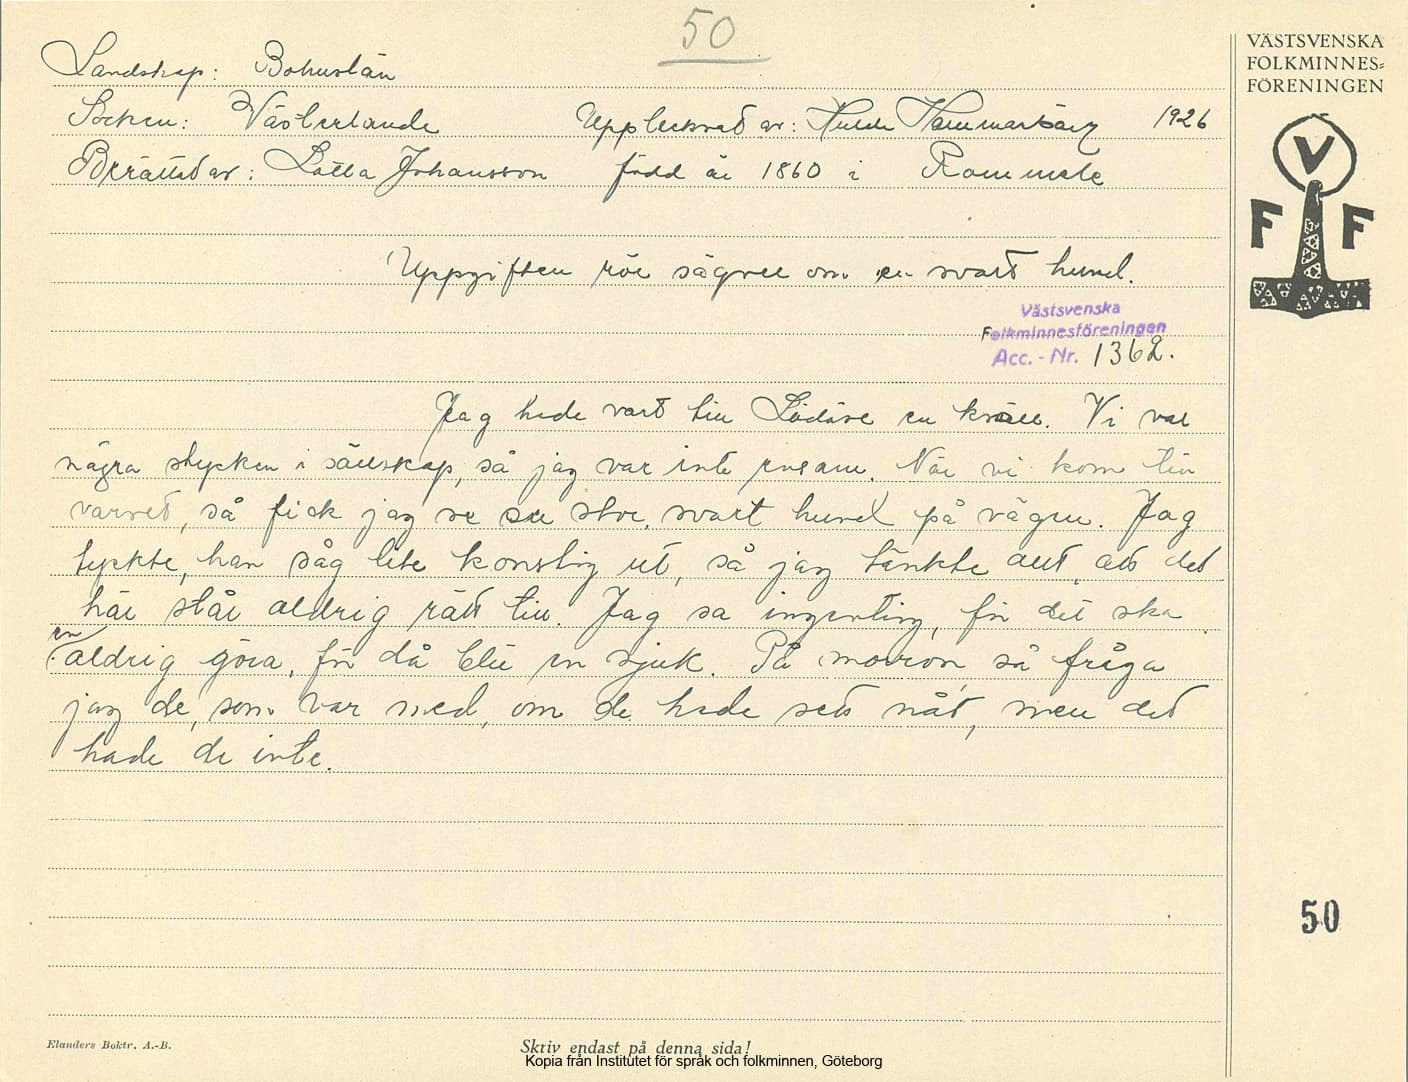 50
Landskap: Bohuslän
Socken: Västerlanda Upptecknat av: Hulda Hammarbäck 1926
Berättat av: Lotta Johansson född år 1860 i Rommele
Uppgiften rör sägnen om en svart hund.
Västsvenska
Folkminnesföreningen
Acc. - Nr. 1362.
Jag hade vart till Lödöse en kväll. Vi var
några stycken i sällskap, så jag var inte ensam. När vi kom till
varvet, så fick jag se en stor, svart hund på vägen. Jag
tyckte, han såg lite konstig ut, så jag tänkte allt, att det
här står aldrig rätt till. Jag sa ingenting, för det ska
en
aldrig göra, för då blir en sjuk. På morron så fråga
jag de, som var med, om de hade sett nåt, men det
hade de inte.
VÄSTSVENSKA
FOLKMINNES=
FÖRENINGEN
V
F F
50
Elanders Boktr. A.-B.
Skriv endast på denna sida!
Kopia från Institutet för språk och folkminnen, Göteborg